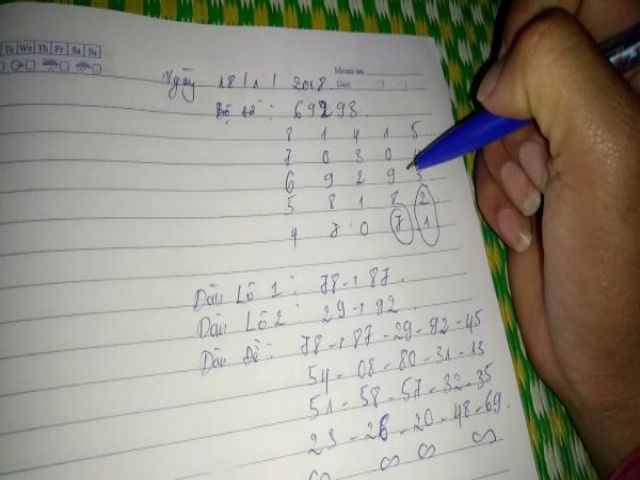 Tu We Th Fr Sa Su
Memo no.
Date / /
Ngày 18/1/2018
Bộ số: 69293.
8 1 4 1 5
7 0 3 0 4
6 9 2 9 3
5 8 1 8 2
4 7 0 7 1
Dàn Lô 1: 78-+ 87.
Dàn Lô 2: 29-+ 92.
Dàn Đề: 78-+ 87-29-92-45
54-08-80-31-13
51-58-57-32-35
23-26-20-48-69.